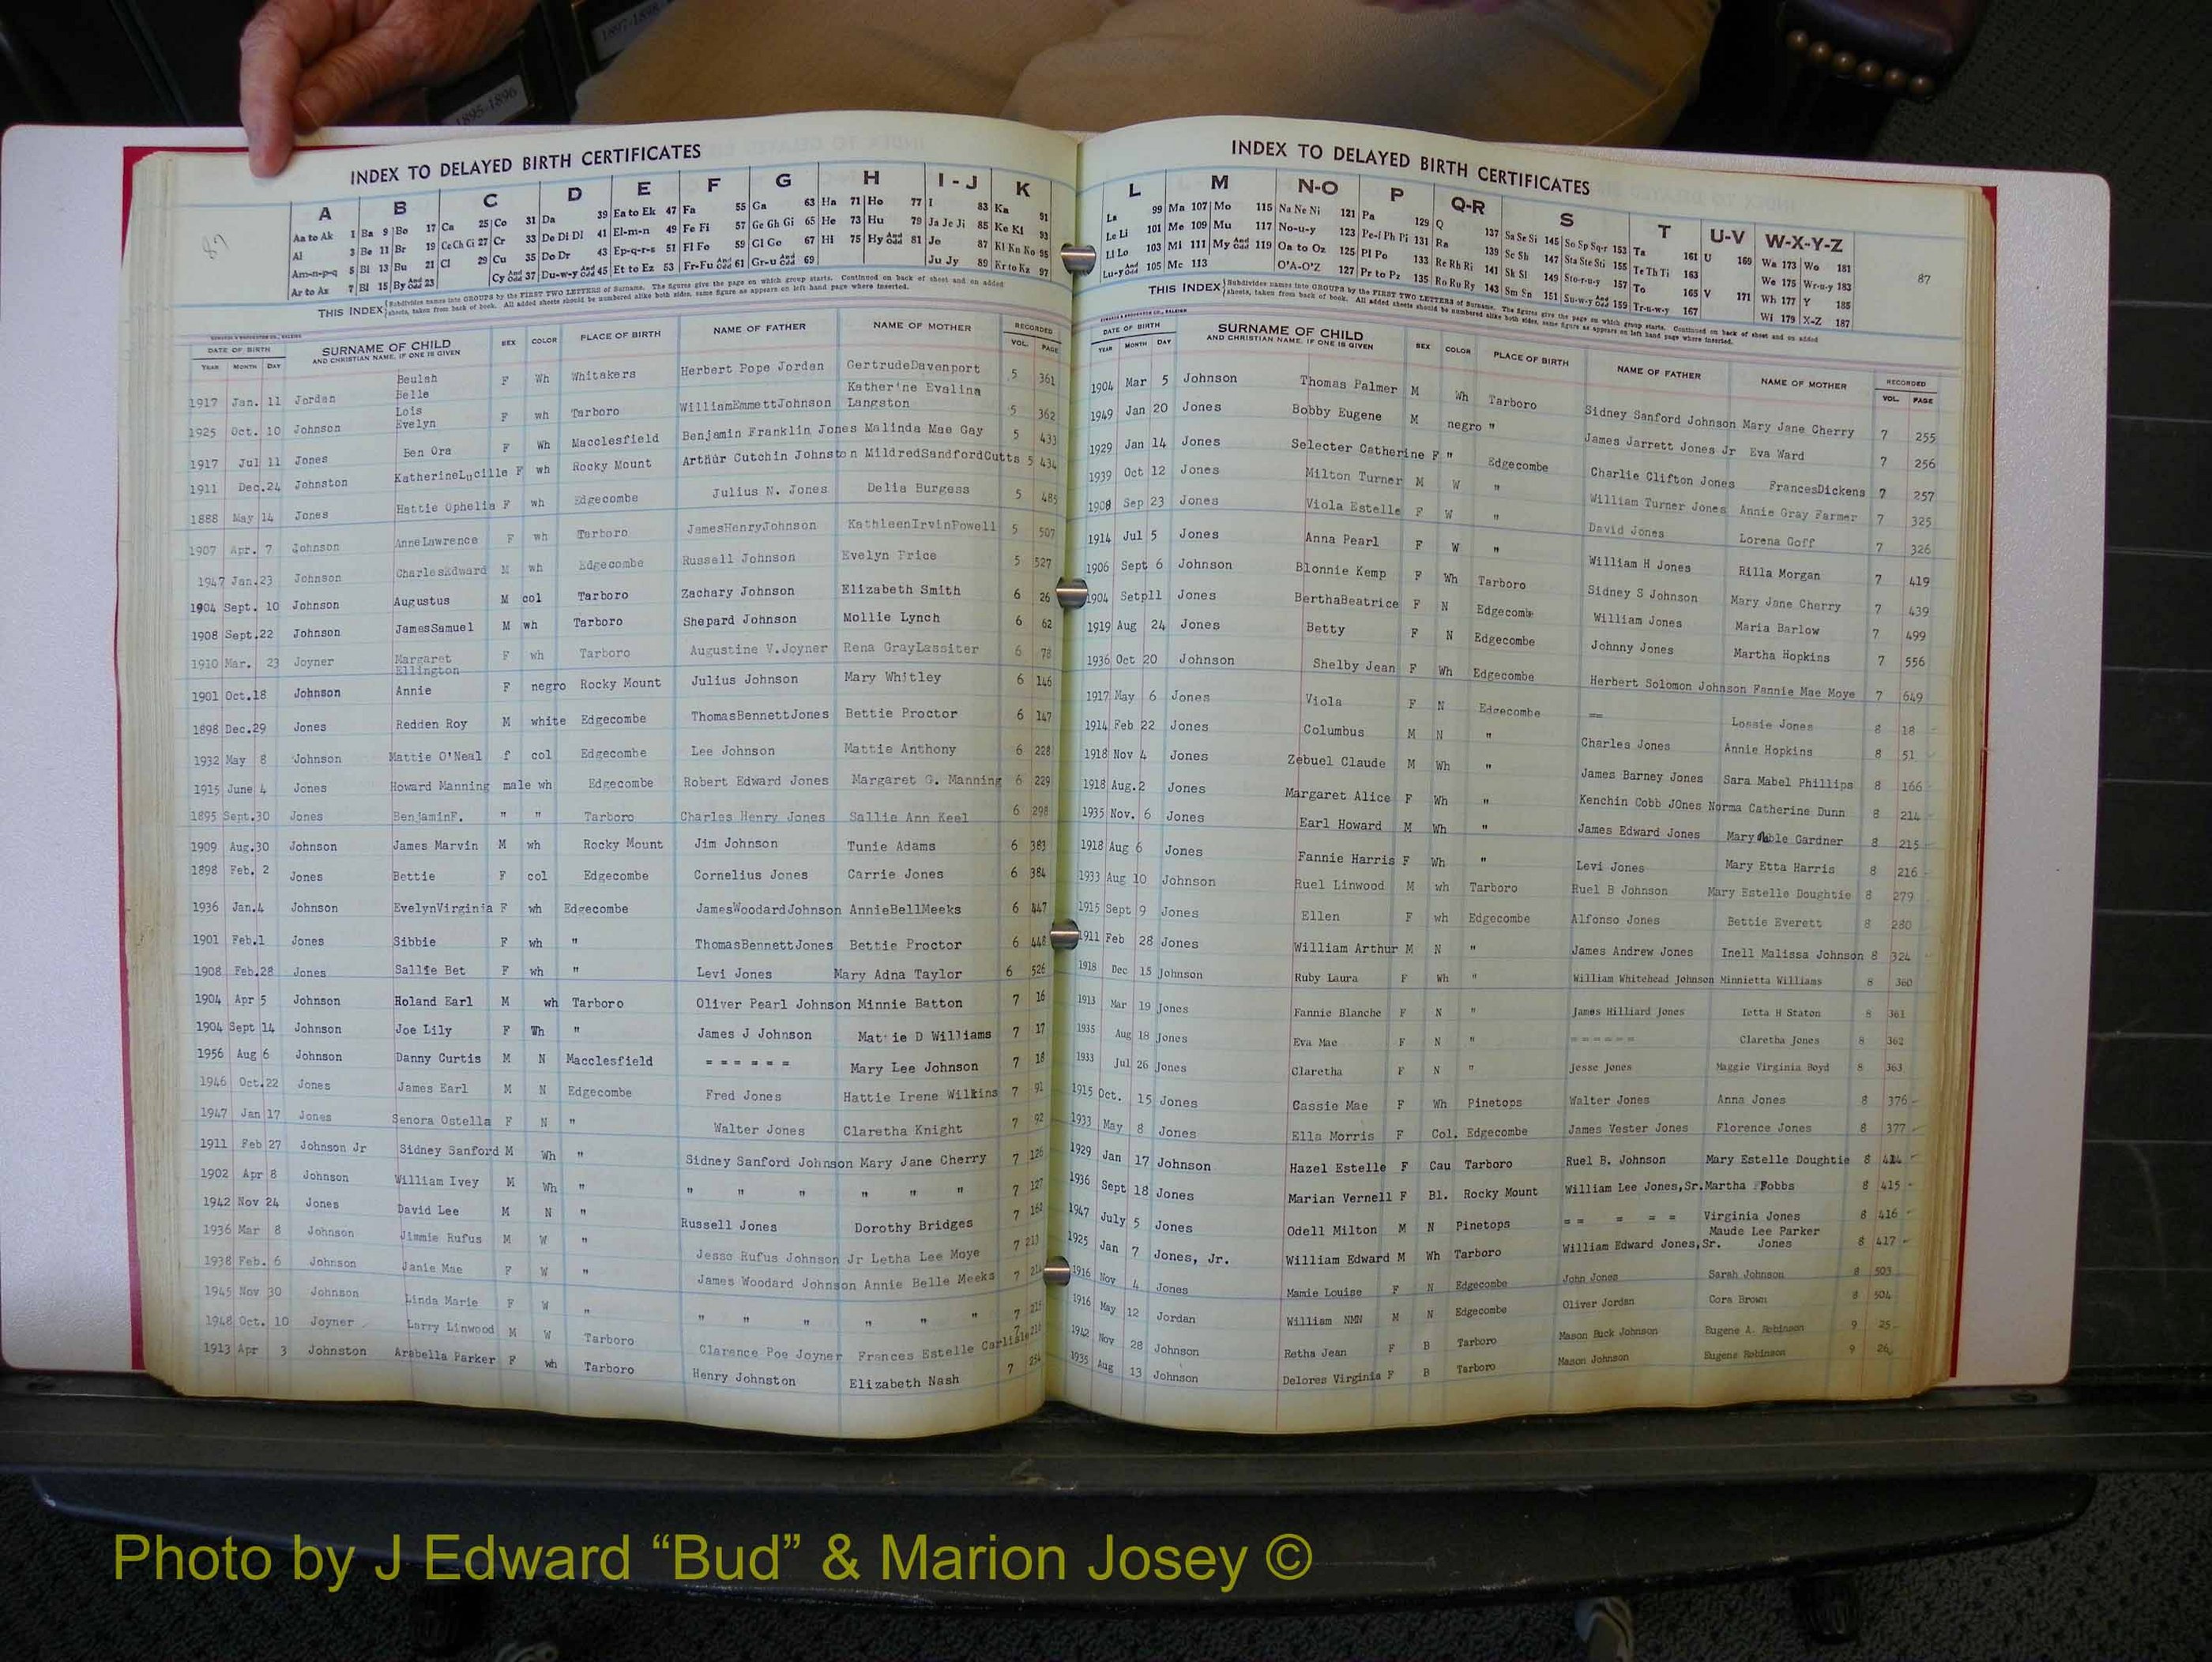 1897-1898
1895-1896
INDEX TO DELAYED BIRTH CERTIFICATES
A B C D E F G H I-J K
Aa to Ak 1 Ba 9 Bo 17 Ca 25 Co 31 Da 39 Ea to Ek 47 Fa 55 Ga 63 Ha 71 Ho 77 I 83 Ka 91
Al 3 Be 11 Br 19 Ce Ch Ci 27 Cr 33 De Di Dl 41 El-m-n 49 Fe Fi 57 Ge Gh Gi 65 He 73 Hu 79 Ja Je Ji 85 Ke Kl 93
Am-n-p-q 5 Bi 13 Bu 21 Cl 29 Cu 35 Do Dr 43 Ep-q-r-s 51 Fl Fo 59 Gl Go 67 Hi 75 Hy And Odd 81 Jo 87 Kl Kn Ko 95
Ar to Ax 7 Bl 15 By And Odd 23 Cy And Odd 37 Du-w-y And Odd 45 Et to Ez 53 Fr-Fu And Odd 61 Gr-u And Odd 69 Ju Jy 89 Kr to Kz 97
THIS INDEX Subdivides names into GROUPS by the FIRST TWO LETTERS of Surname. The figures give the page on which group starts. Continued on back of sheet and on added
sheets, taken from back of book. All added sheets should be numbered alike both sides, same figure as appears on left hand page where inserted.
DATE OF BIRTH SURNAME OF CHILD SEX COLOR PLACE OF BIRTH NAME OF FATHER NAME OF MOTHER RECORDED
YEAR MONTH DAY AND CHRISTIAN NAME, IF ONE IS GIVEN VOL. PAGE
1917 Jan. 11 Jordan Beulah Belle F Wh Whitakers Herbert Pope Jordan GertrudeDavenport 5 361
1925 Oct. 10 Johnson Lois Evelyn F wh Tarboro WilliamEmmettJohnson Kather'ne Evalina Langston 5 362
1917 Jul 11 Jones Ben Ora F Wh Macclesfield Benjamin Franklin Jones Malinda Mae Gay 5 433
1911 Dec.24 Johnston KatherineLucille F wh Rocky Mount Arthur Cutchin Johnston MildredSandfordCutts 5 434
1888 May 14 Jones Hattie Ophelia F wh Edgecombe Julius N. Jones Delia Burgess 5 485
1907 Apr. 7 Johnson AnneLawrence F wh Tarboro JamesHenryJohnson KathleenIrvinPowell 5 507
1947 Jan.23 Johnson CharlesEdward M wh Edgecombe Russell Johnson Evelyn Price 5 527
1904 Sept. 10 Johnson Augustus M col Tarboro Zachary Johnson Elizabeth Smith 6 26
1908 Sept.22 Johnson JamesSamuel M wh Tarboro Shepard Johnson Mollie Lynch 6 62
1910 Mar. 23 Joyner Margaret Ellington F wh Tarboro Augustine V.Joyner Rena GrayLassiter 6 78
1901 Oct.18 Johnson Annie F negro Rocky Mount Julius Johnson Mary Whitley 6 146
1898 Dec.29 Jones Redden Roy M white Edgecombe ThomasBennettJones Bettie Proctor 6 147
1932 May 8 Johnson Mattie O'Neal f col Edgecombe Lee Johnson Mattie Anthony 6 228
1915 June 4 Jones Howard Manning male wh Edgecombe Robert Edward Jones Margaret G. Manning 6 229
1895 Sept.30 Jones BenjaminF. " " Tarboro Charles Henry Jones Sallie Ann Keel 6 298
1909 Aug.30 Johnson James Marvin M wh Rocky Mount Jim Johnson Tunie Adams 6 383
1898 Feb. 2 Jones Bettie F col Edgecombe Cornelius Jones Carrie Jones 6 384
1936 Jan.4 Johnson EvelynVirginia F wh Edgecombe JamesWoodardJohnson AnnieBellMeeks 6 447
1901 Feb.1 Jones Sibbie F wh " ThomasBennettJones Bettie Proctor 6 448
1908 Feb.28 Jones Sallie Bet F wh " Levi Jones Mary Adna Taylor 6 526
1904 Apr 5 Johnson Roland Earl M wh Tarboro Oliver Pearl Johnson Minnie Batton 7 16
1904 Sept 14 Johnson Joe Lily F Wh " James J Johnson Mattie D Williams 7 17
1956 Aug 6 Johnson Danny Curtis M N Macclesfield = = = = = = Mary Lee Johnson 7 18
1946 Oct.22 Jones James Earl M N Edgecombe Fred Jones Hattie Irene Wilkins 7 91
1947 Jan 17 Jones Senora Ostella F N " Walter Jones Claretha Knight 7 92
1911 Feb 27 Johnson Jr Sidney Sanford M Wh " Sidney Sanford Johnson Mary Jane Cherry 7 126
1902 Apr 8 Johnson William Ivey M Wh " " " " " " " 7 127
1942 Nov 24 Jones David Lee M N " Russell Jones Dorothy Bridges 7 160
1936 Mar 8 Johnson Jimmie Rufus M W " Jesse Rufus Johnson Jr Letha Lee Moye 7 213
1938 Feb. 6 Johnson Janie Mae F W " James Woodard Johnson Annie Belle Meeks 7 214
1945 Nov 30 Johnson Linda Marie F W " " " " " " " 7 215
1948 Oct. 10 Joyner Larry Linwood M W Tarboro Clarence Poe Joyner Frances Estelle Carlisle 7 216
1913 Apr 3 Johnston Arabella Parker F wh Tarboro Henry Johnston Elizabeth Nash 7 254
INDEX TO DELAYED BIRTH CERTIFICATES
L M N-O P Q-R S T U-V W-X-Y-Z
La 99 Ma 107 Mo 115 Na Ne Ni 121 Pa 129 Q 137 Sa Se Si 145 So Sp Sq-r 153 Ta 161 U 169 Wa 173 Wo 181
Le Li 101 Me 109 Mu 117 No-u-y 123 Pe-f Ph Pi 131 Ra 139 Sc Sh 147 Sta Ste Sti 155 Te Th Ti 163 We 175 Wr-u-y 183
Ll Lo 103 Mi 111 My And Odd 119 Oa to Oz 125 Pl Po 133 Re Rh Ri 141 Sk Sl 149 Sto-r-u-y 157 To 165 V 171 Wh 177 Y 185
Lu-y And Odd 105 Mc 113 O'A-O'Z 127 Pr to Pz 135 Ro Ru Ry 143 Sm Sn 151 Su-w-y And Odd 159 Tr-u-w-y 167 Wi 179 X-Z 187
87
THIS INDEX Subdivides names into GROUPS by the FIRST TWO LETTERS of Surname. The figures give the page on which group starts. Continued on back of sheet and on added
sheets, taken from back of book. All added sheets should be numbered alike both sides, same figure as appears on left hand page where inserted.
DATE OF BIRTH SURNAME OF CHILD SEX COLOR PLACE OF BIRTH NAME OF FATHER NAME OF MOTHER RECORDED
YEAR MONTH DAY AND CHRISTIAN NAME, IF ONE IS GIVEN VOL. PAGE
1904 Mar 5 Johnson Thomas Palmer M Wh Tarboro Sidney Sanford Johnson Mary Jane Cherry 7 255
1949 Jan 20 Jones Bobby Eugene M negro " James Jarrett Jones Jr Eva Ward 7 256
1929 Jan 14 Jones Selecter Catherine F " Edgecombe Charlie Clifton Jones FrancesDickens 7 257
1939 Oct 12 Jones Milton Turner M W " William Turner Jones Annie Gray Farmer 7 325
1908 Sep 23 Jones Viola Estelle F W " David Jones Lorena Goff 7 326
1914 Jul 5 Jones Anna Pearl F W " William H Jones Rilla Morgan 7 419
1906 Sept 6 Johnson Blonnie Kemp F Wh Tarboro Sidney S Johnson Mary Jane Cherry 7 439
1904 Setp11 Jones BerthaBeatrice F N Edgecombe William Jones Maria Barlow 7 499
1919 Aug 24 Jones Betty F N Edgecombe Johnny Jones Martha Hopkins 7 556
1936 Oct 20 Johnson Shelby Jean F Wh Edgecombe Herbert Solomon Johnson Fannie Mae Moye 7 649
1917 May 6 Jones Viola F N Edgecombe == Lossie Jones 8 18
1914 Feb 22 Jones Columbus M N " Charles Jones Annie Hopkins 8 51
1918 Nov 4 Jones Zebuel Claude M Wh " James Barney Jones Sara Mabel Phillips 8 166
1918 Aug.2 Jones Margaret Alice F Wh " Kenchin Cobb JOnes Norma Catherine Dunn 8 214
1935 Nov. 6 Jones Earl Howard M Wh " James Edward Jones Mary Gardner 8 215
1918 Aug 6 Jones Fannie Harris F Wh " Levi Jones Mary Etta Harris 8 216
1933 Aug 10 Johnson Ruel Linwood M wh Tarboro Ruel B Johnson Mary Estelle Doughtie 8 279
1915 Sept 9 Jones Ellen F wh Edgecombe Alfonso Jones Bettie Everett 8 280
1911 Feb 28 Jones William Arthur M N " James Andrew Jones Inell Malissa Johnson 8 324
1918 Dec 15 Johnson Ruby Laura F Wh " William Whitehead Johnson Minnietta Williams 8 360
1913 Mar 19 Jones Fannie Blanche F N " James Hilliard Jones Ietta H Staton 8 361
1935 Aug 18 Jones Eva Mae F N " = = = = = = Claretha Jones 8 362
1933 Jul 26 Jones Claretha F N " Jesse Jones Maggie Virginia Boyd 8 363
1915 Oct. 15 Jones Cassie Mae F Wh Pinetops Walter Jones Anna Jones 8 376
1933 May 8 Jones Ella Morris F Col. Edgecombe James Vester Jones Florence Jones 8 377
1929 Jan 17 Johnson Hazel Estelle F Cau Tarboro Ruel B. Johnson Mary Estelle Doughtie 8 414
1936 Sept 18 Jones Marian Vernell F Bl. Rocky Mount William Lee Jones,Sr. Martha Fobbs 8 415
1947 July 5 Jones Odell Milton M N Pinetops == = = = Virginia Jones 8 416
1925 Jan 7 Jones, Jr. William Edward M Wh Tarboro William Edward Jones,Sr. Maude Lee Parker Jones 8 417
1916 Nov 4 Jones Mamie Louise F N Edgecombe John Jones Sarah Johnson 8 503
1916 May 12 Jordan William NMN M N Edgecombe Oliver Jordan Cora Brown 8 504
1942 Nov 28 Johnson Retha Jean F B Tarboro Mason Buck Johnson Eugene A. Robinson 9 25
1935 Aug 13 Johnson Delores Virginia F B Tarboro Mason Johnson Eugene Robinson 9 26
Photo by J Edward “Bud” & Marion Josey ©